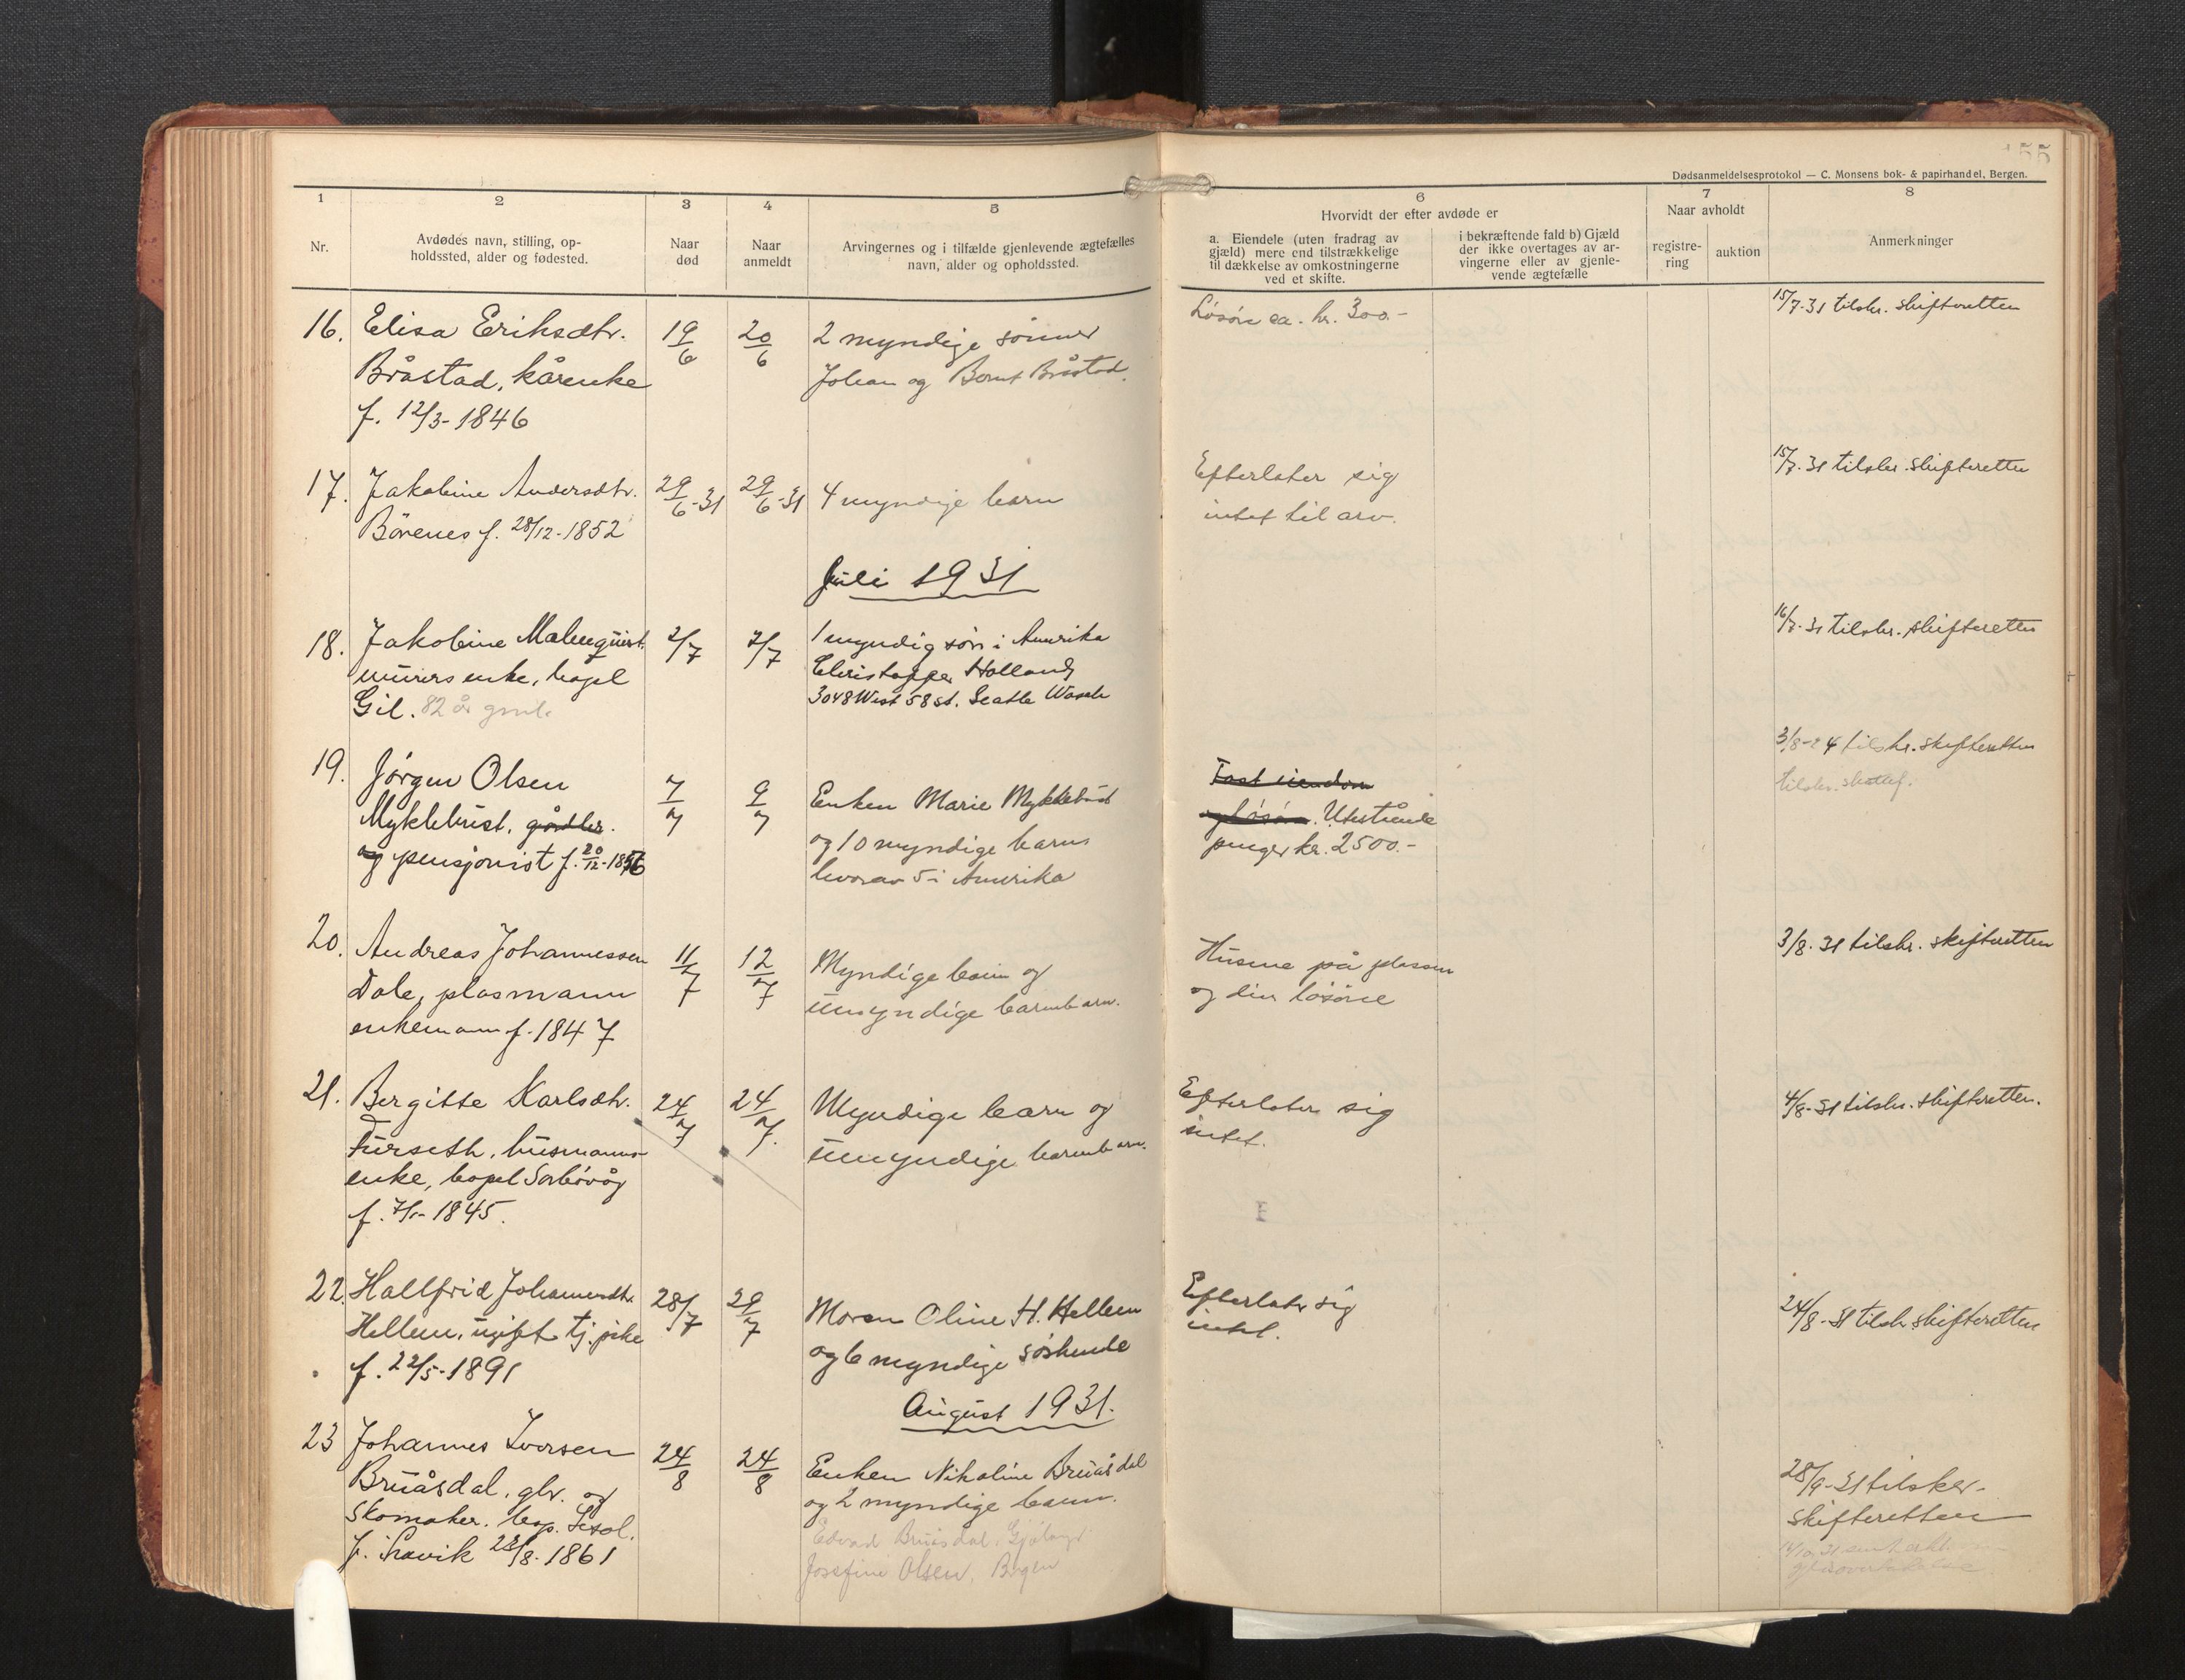 155
Dødsanmeldelsesprotokol — C. Monsens bok- & papirhandel, Bergen.
1
2
3
4
5
6
7
8
Nr.
Avdødes navn, stilling, op-
holdssted, alder og fødested.
Naar
død
Naar
anmeldt
Arvingernes og i tilfælde gjenlevende ægtefælles
navn, alder og opholdssted.
Hvorvidt der efter avdøde er
a. Eiendele (uten fradrag av
gjæld) mere end tilstrækkelige
til dækkelse av omkostningerne
ved et skifte.
i bekræftende fald b) Gjæld
der ikke overtages av ar-
vingerne eller av gjenle-
vende ægtefælle
Naar avholdt
registre-
ring
auktion
Anmerkninger
16.
Elisa Eriksdtr.
Bråstad, kårenke
f. 12/3-1846
19/6
20/6
2 myndige sönner
Johan og Bernt Bråstad.
Lösöre ca. kr. 300.-
15/7-31 tilskr. skifteretten
17.
Jakobine Andersdtr.
Börenes f. 28/12-1852
29/6-31
29/6-31
4 myndige barn
Efterlater sig
intet til arv.
15/7-31 tilskr. skifteretten
Juli 1931
18.
Jakobine Malmquist.
murers enke, bopel
Gil. 82 år gml.
2/7
7/7
1 myndig sön i Amerika
Christopher Holland
3048 West 58 st. Seatle Wash
16/7-31 tilskr. skifteretten
19.
Jörgen Olsen
Myklebust, gårdbr.
og pensjonist f. 20/12-1856
7/7
9/7
Enken Marie Myklebust
og 10 myndige barn
hvorav 5 i Amerika
Fast eiendom
og lösöre. Utestående
penger kr. 2500.-
3/8- tilskr. skifteretten
tilskr.
20.
Andreas Johannessen
Dale, plasmann
enkemann f. 1847
11/7
12/7
Myndige barn og
umyndige barnebarn.
Husene på plassen
og din lösöre
3/8-31 tilskr. skifteretten
21.
Bergitte Karlsdtr.
Furseth, husmanns-
enke, bopel Sörbövåg
f. 1845.
24/7
24/7.
Myndige barn og
umyndige barnebarn.
Efterlater sig
intet.
4/8-31 tilskr. skifteretten.
22.
Hallfrid Johannesdtr.
Hellem, ugift tj. pike
f. 22/5-1891
28/7
29/7
Moren Oline H. Hellem
og 6 myndige söskende
Efterlater sig
intet.
24/8-31 tilskr. skifteretten
August 1931.
23
Johannes Iversen
Bruåsdal, gbr. og
skomaker. bop.
f. 28/8-1861
24/8
24/8
Enken Nikoline Bruåsdal
og 2 myndige barn.
Edvard Bruåsdal,
Josefine Olsen,
28/9-31 tilskr.
skifteretten